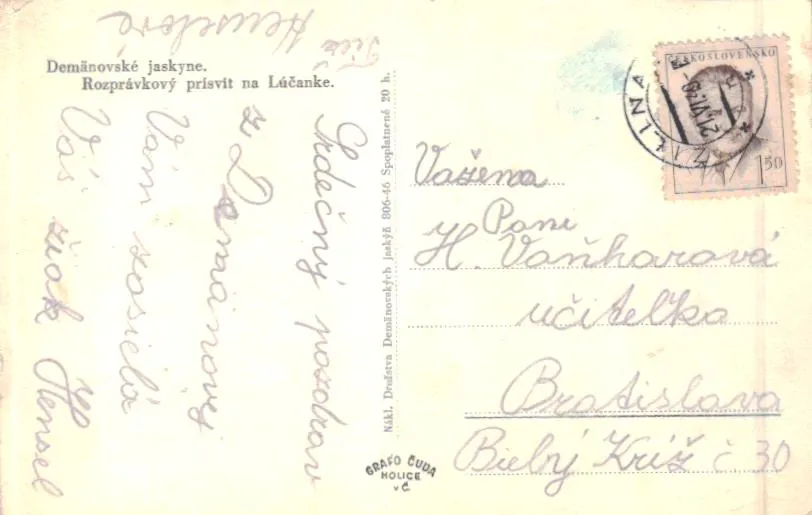 Demänovské jaskyne.
Rozprávkový prísvit na Lúčanke.
Srdečný pozdrav
z Demänovej
Vám zasiela
Váš žiak Hensel
Tiež Henselová
Nákl. Družstva Demänovských jaskýň 806-46 Spoplatnené 20 h.
GRAFO ČUDA
HOLICE
v Č
ČESKOSLOVENSKO
1.50
ŽILINA
Vážená
Pani
H. Vaňharová
učiteľka
Bratislava
Biely Kríž č. 30